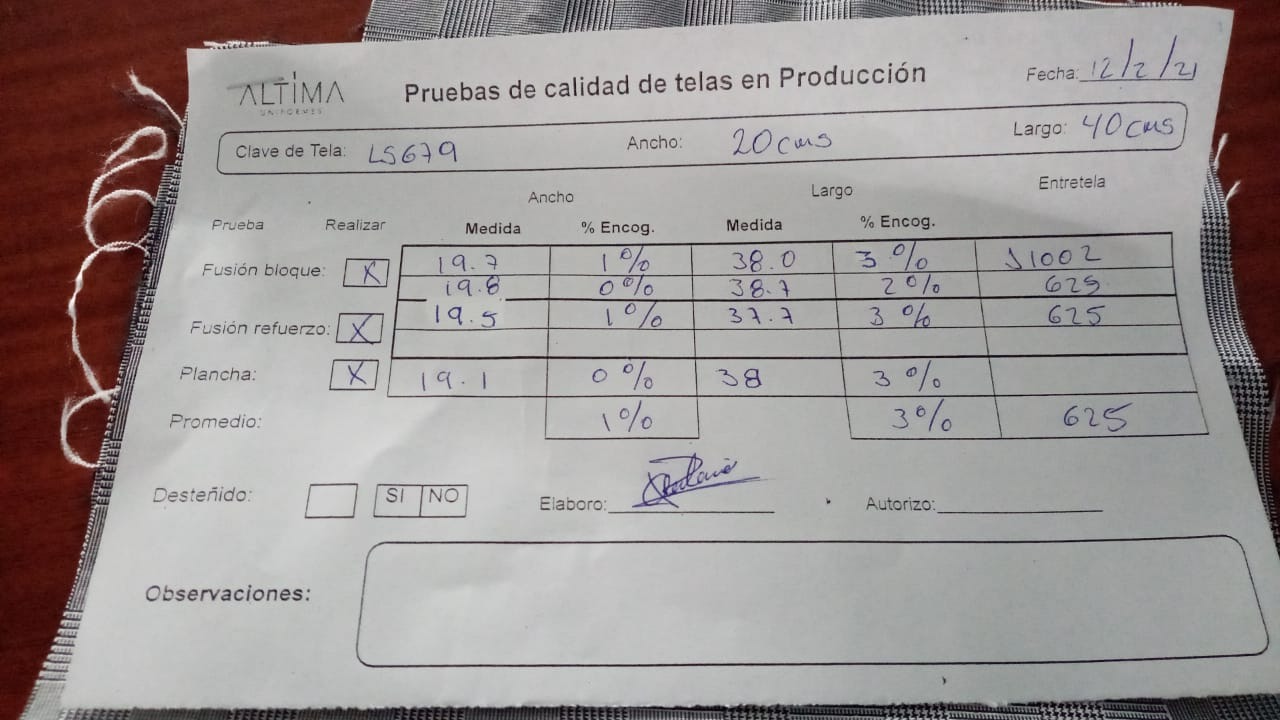 ALTIMA
UNIFORMES
Pruebas de calidad de telas en Producción
Fecha: 12/2/21
Clave de Tela: LS679 Ancho: 20 cms Largo: 40 cms
Ancho Largo Entretela
Prueba Realizar Medida % Encog. Medida % Encog.
Fusión bloque: X 19.7 1% 38.0 3% J1002
19.8 0% 38.7 2% 625
Fusión refuerzo: X 19.5 1% 37.7 3% 625
Plancha: X 19.1 0% 38 3%
Promedio: 1% 3% 625
Desteñido: SI NO Elaboro: Autorizo:
Observaciones: